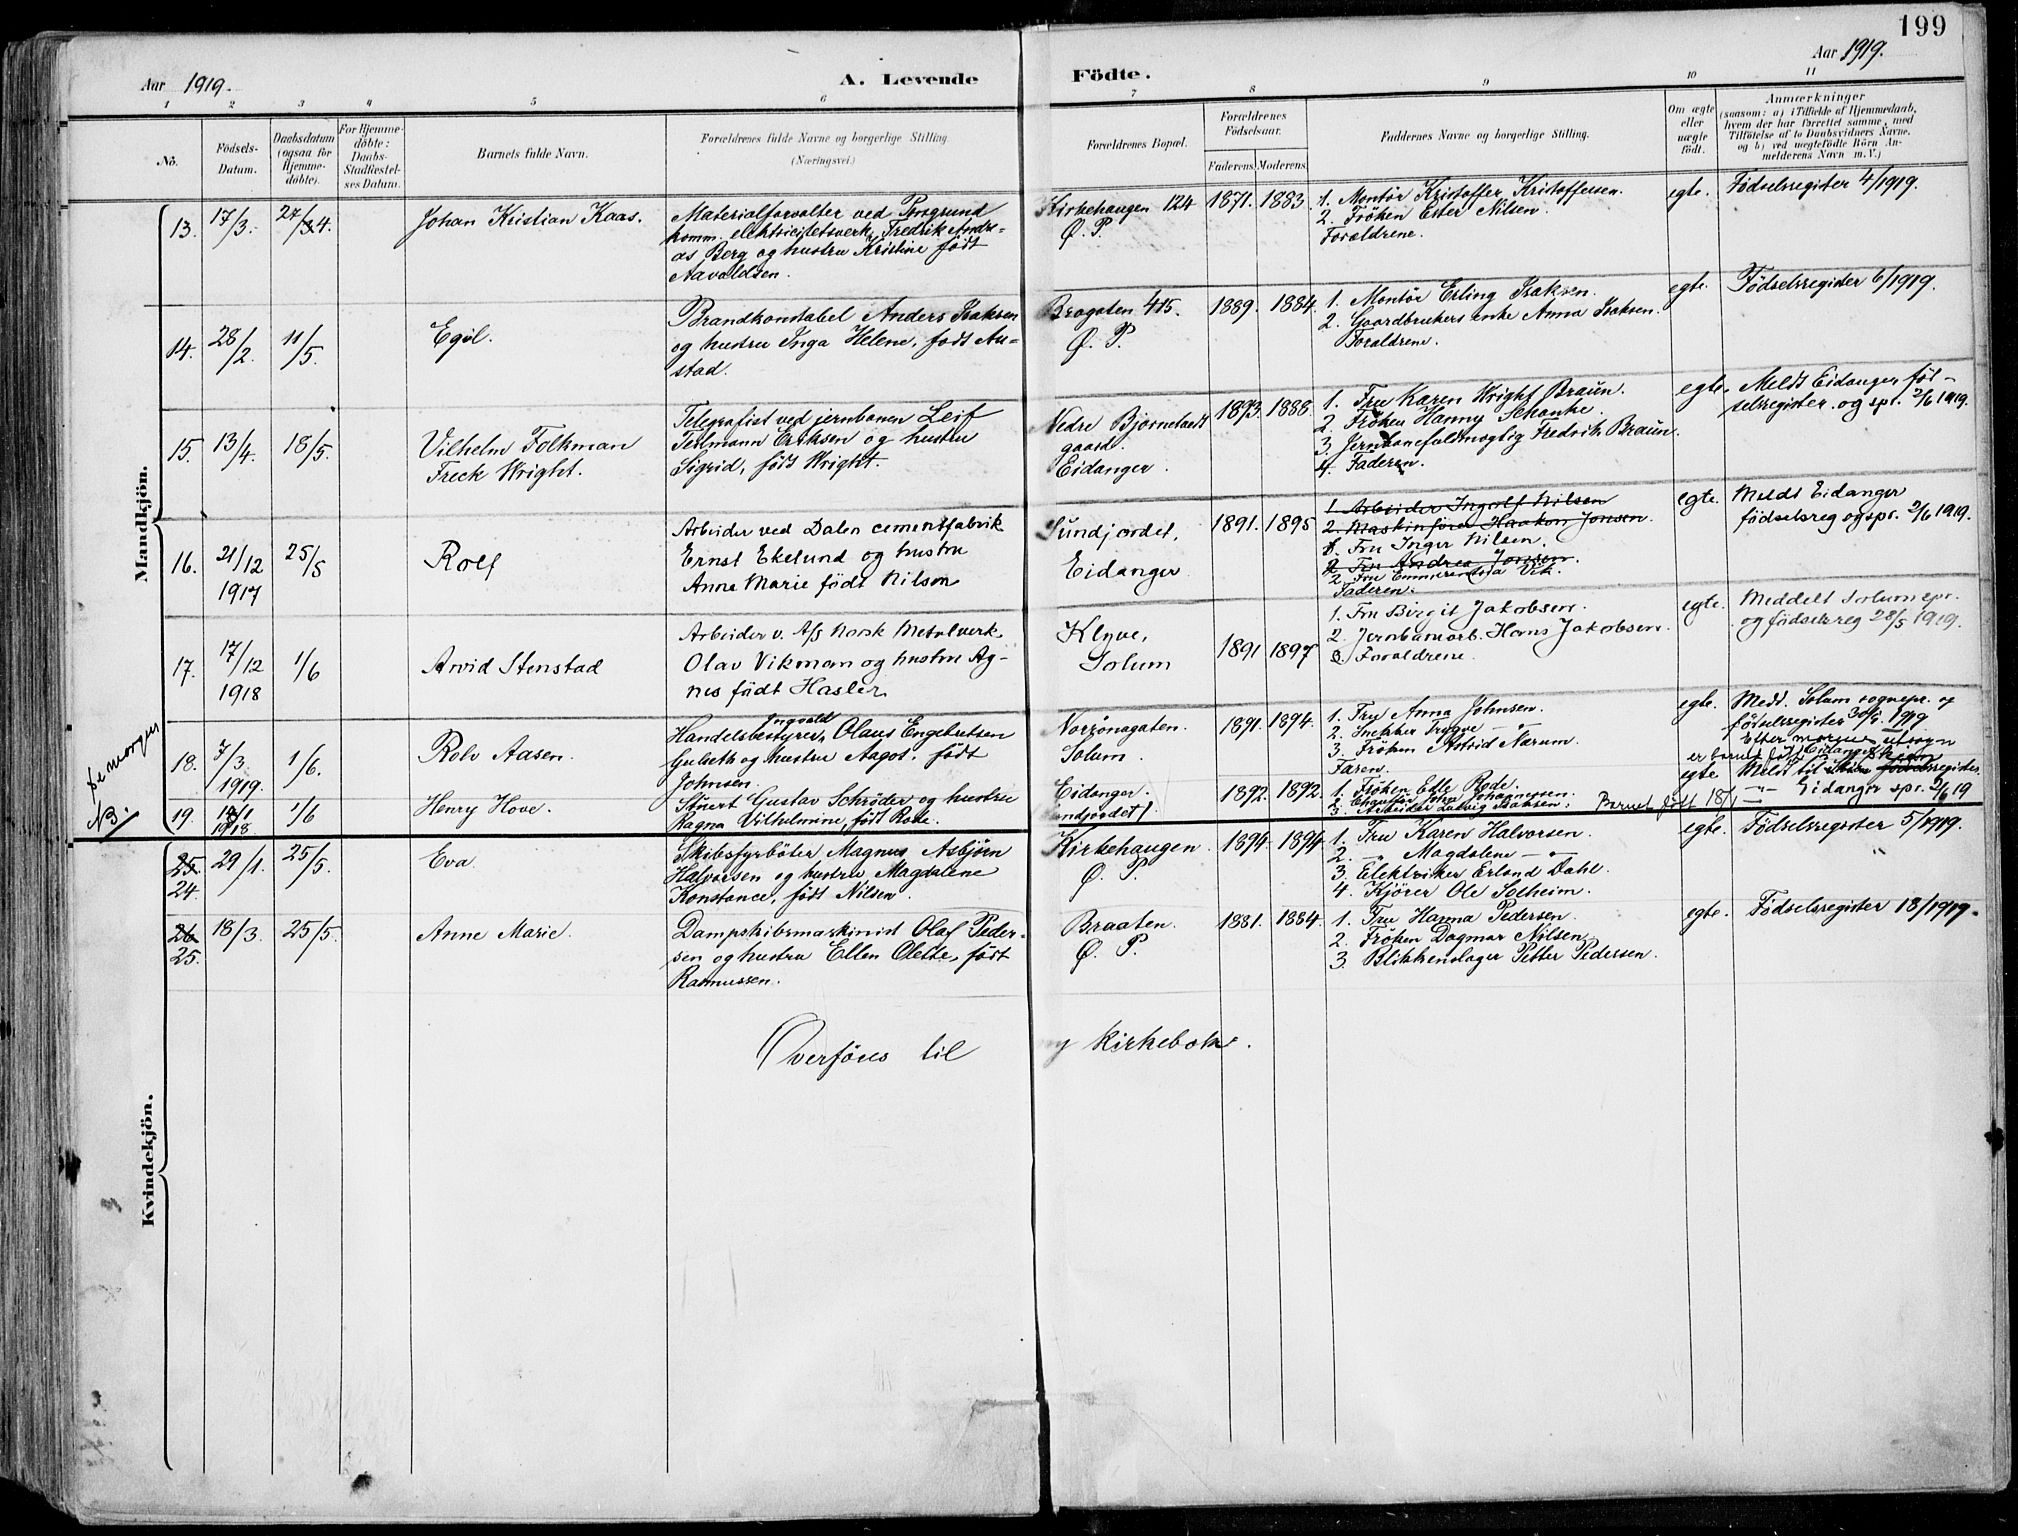 199
Aar 1919.
A. Levende
Födte.
Aar 1919.
1 2 3 4 5 6 7 8 9 10 11
No.
Födsels-
Datum.
Daabsdatum
(ogsaa for
Hjemme-
döbte).
For Hjemme-
döbte:
Daabs-
Stadfæstel-
ses Datum.
Barnets fulde Navn.
Forældrenes fulde Navne og borgerlige Stilling
(Næringsvei.)
Forældrenes Bopæl.
Forældrenes
Födselsaar.
Faderens. Moderens.
Faddernes Navne og borgerlige Stilling.
Om ægte
eller
uægte
födt.
Anmærkninger
(saasom: a) i Tilfælde af Hjemmedaab,
hvem der har forrettet samme, med
Tilföielse af to Daabsvidners Navne.
og b) ved uægtefödte Börn An-
melderens Navn m. V.)
Mandkjön.
13. 17/3. 27/4. Johan Kristian Kaas.
Materialforvalter ved Porsgrund
komm. elektricitetsverk, Fredrik Andre-
as Berg og hustru Kristine født
Aavaldsen.
Kirkehaugen 124
Ø. P.
1871. 1883.
1. Montør Kristoffer Kristoffersen.
2. Frøken Ester Nilsen.
Forældrene.
egte. Fødselsregister 4/1919.
14. 28/2. 11/5. Egil.
Brandkonstabel Anders Isaksen
og hustru Inga Helene, født Au-
stad.
Brogaten 415.
Ø. P.
1889. 1884.
1. Montør Erling Isaksen.
2. Gaardbrukers enke Anna Isaksen.
Forældrene.
egte. Fødselsregister 6/1919.
15. 13/4. 18/5. Vilhelm Folkman
Treck Wright.
Telegrafist ved jernbanen Leif
Teilmann Eriksen og hustru
Sigrid, født Wright.
Nedre Bjørnstad
gaard.
Eidanger.
1893. 1888.
1. Fru Karen Wright Braun.
2. Frøken Hanny Schanke.
3. Jernbanefuldmægtig Fredrik Braun.
4. Faderen.
egte. Meldt Eidanger fød-
selsregister og spr. 2/6 1919.
16. 21/12 1917 25/5 Rolf
Arbeider ved Dalen cementfabrik
Ernst Ekelund og hustru
Anna Marie født Nilsen
Sundjordet,
Eidanger
1891. 1895
1. Arbeider Ingolf Nilsen
2. Maskinfører Haakon Jonsen.
1. Fru Inger Nilsen.
2. Fru Andrea Jonsen.
2. Fru Emmerentsia Vik.
Faderen.
egte. Meldt Eidanger
fødselsreg og spr. 2/6 1919.
17. 17/12 1918 1/6 Arvid Stenstad
Arbeider v. A/s Norsk Metalverk
Olav Vikman og hustru Ag-
nes født Hasler
Klyve,
Solum
1891 1897
1. Fru Birgit Jakobsen.
2. Jernbanearb. Hans Jakobsen.
3. Forældrene.
egte. Meddelt Solum spr.
og fødselsreg 28/5 1919.
18. 7/3. 1919. 1/6. Rolv Aasen.
Handelsbestyrer Ingvald Olaus Engebretsen
Gulseth og hustru Aagot, født
Johnsen.
Norrønagaten.
Solum.
1891. 1894.
1. Fru Anna Johnsen.
2. Snekker Trygve — " —
3. Frøken Astrid Narum.
Faren.
egte. Medd. Solum sognepr. og
fødselsregister 30/5. 1919
Efter morens utsagn
er barnet født i Eidanger
NB.
19. 1918 1/6 Henry Hove.
Stuert Gustav Schrøder og hustru
Ragna Vilhelmine, født Rode.
Eidanger.
1892. 1892.
1. Frøken Elle Rode.
3. Arbeider Ludvig Isaksen.
Barnet født 18/1
egte Meldt til Skien fødselsregister
— " — Eidanger spr. 2/6 19
Kvindekjön.
25. 24. 29/1. 25/5. Eva.
Skibsfyrbøter Magnus Asbjørn
Halvorsen og hustru Magdalene
Konstance, født Nilsen.
Kirkehaugen.
Ø. P.
1894. 1894.
1. Fru Karen Halvorsen.
2. — " — Magdalene — " —
3. Elektriker Erland Dahl.
4. Kjører Ole Solheim.
egte. Fødselsregister 5/1919.
26. 25. 18/3. 25/5. Anne Marie.
Dampskibsmaskinist Olaf Peder-
sen og hustru Ellen Olette, født
Rasmussen.
Braaten.
Ø. P.
1881. 1884.
1. Fru Hanna Pedersen.
2. Frøken Dagmar Nilsen
3. Blikkenslager Petter Pedersen.
egte. Fødselsregister 18/1919.
Overføres til ny kirkebok.